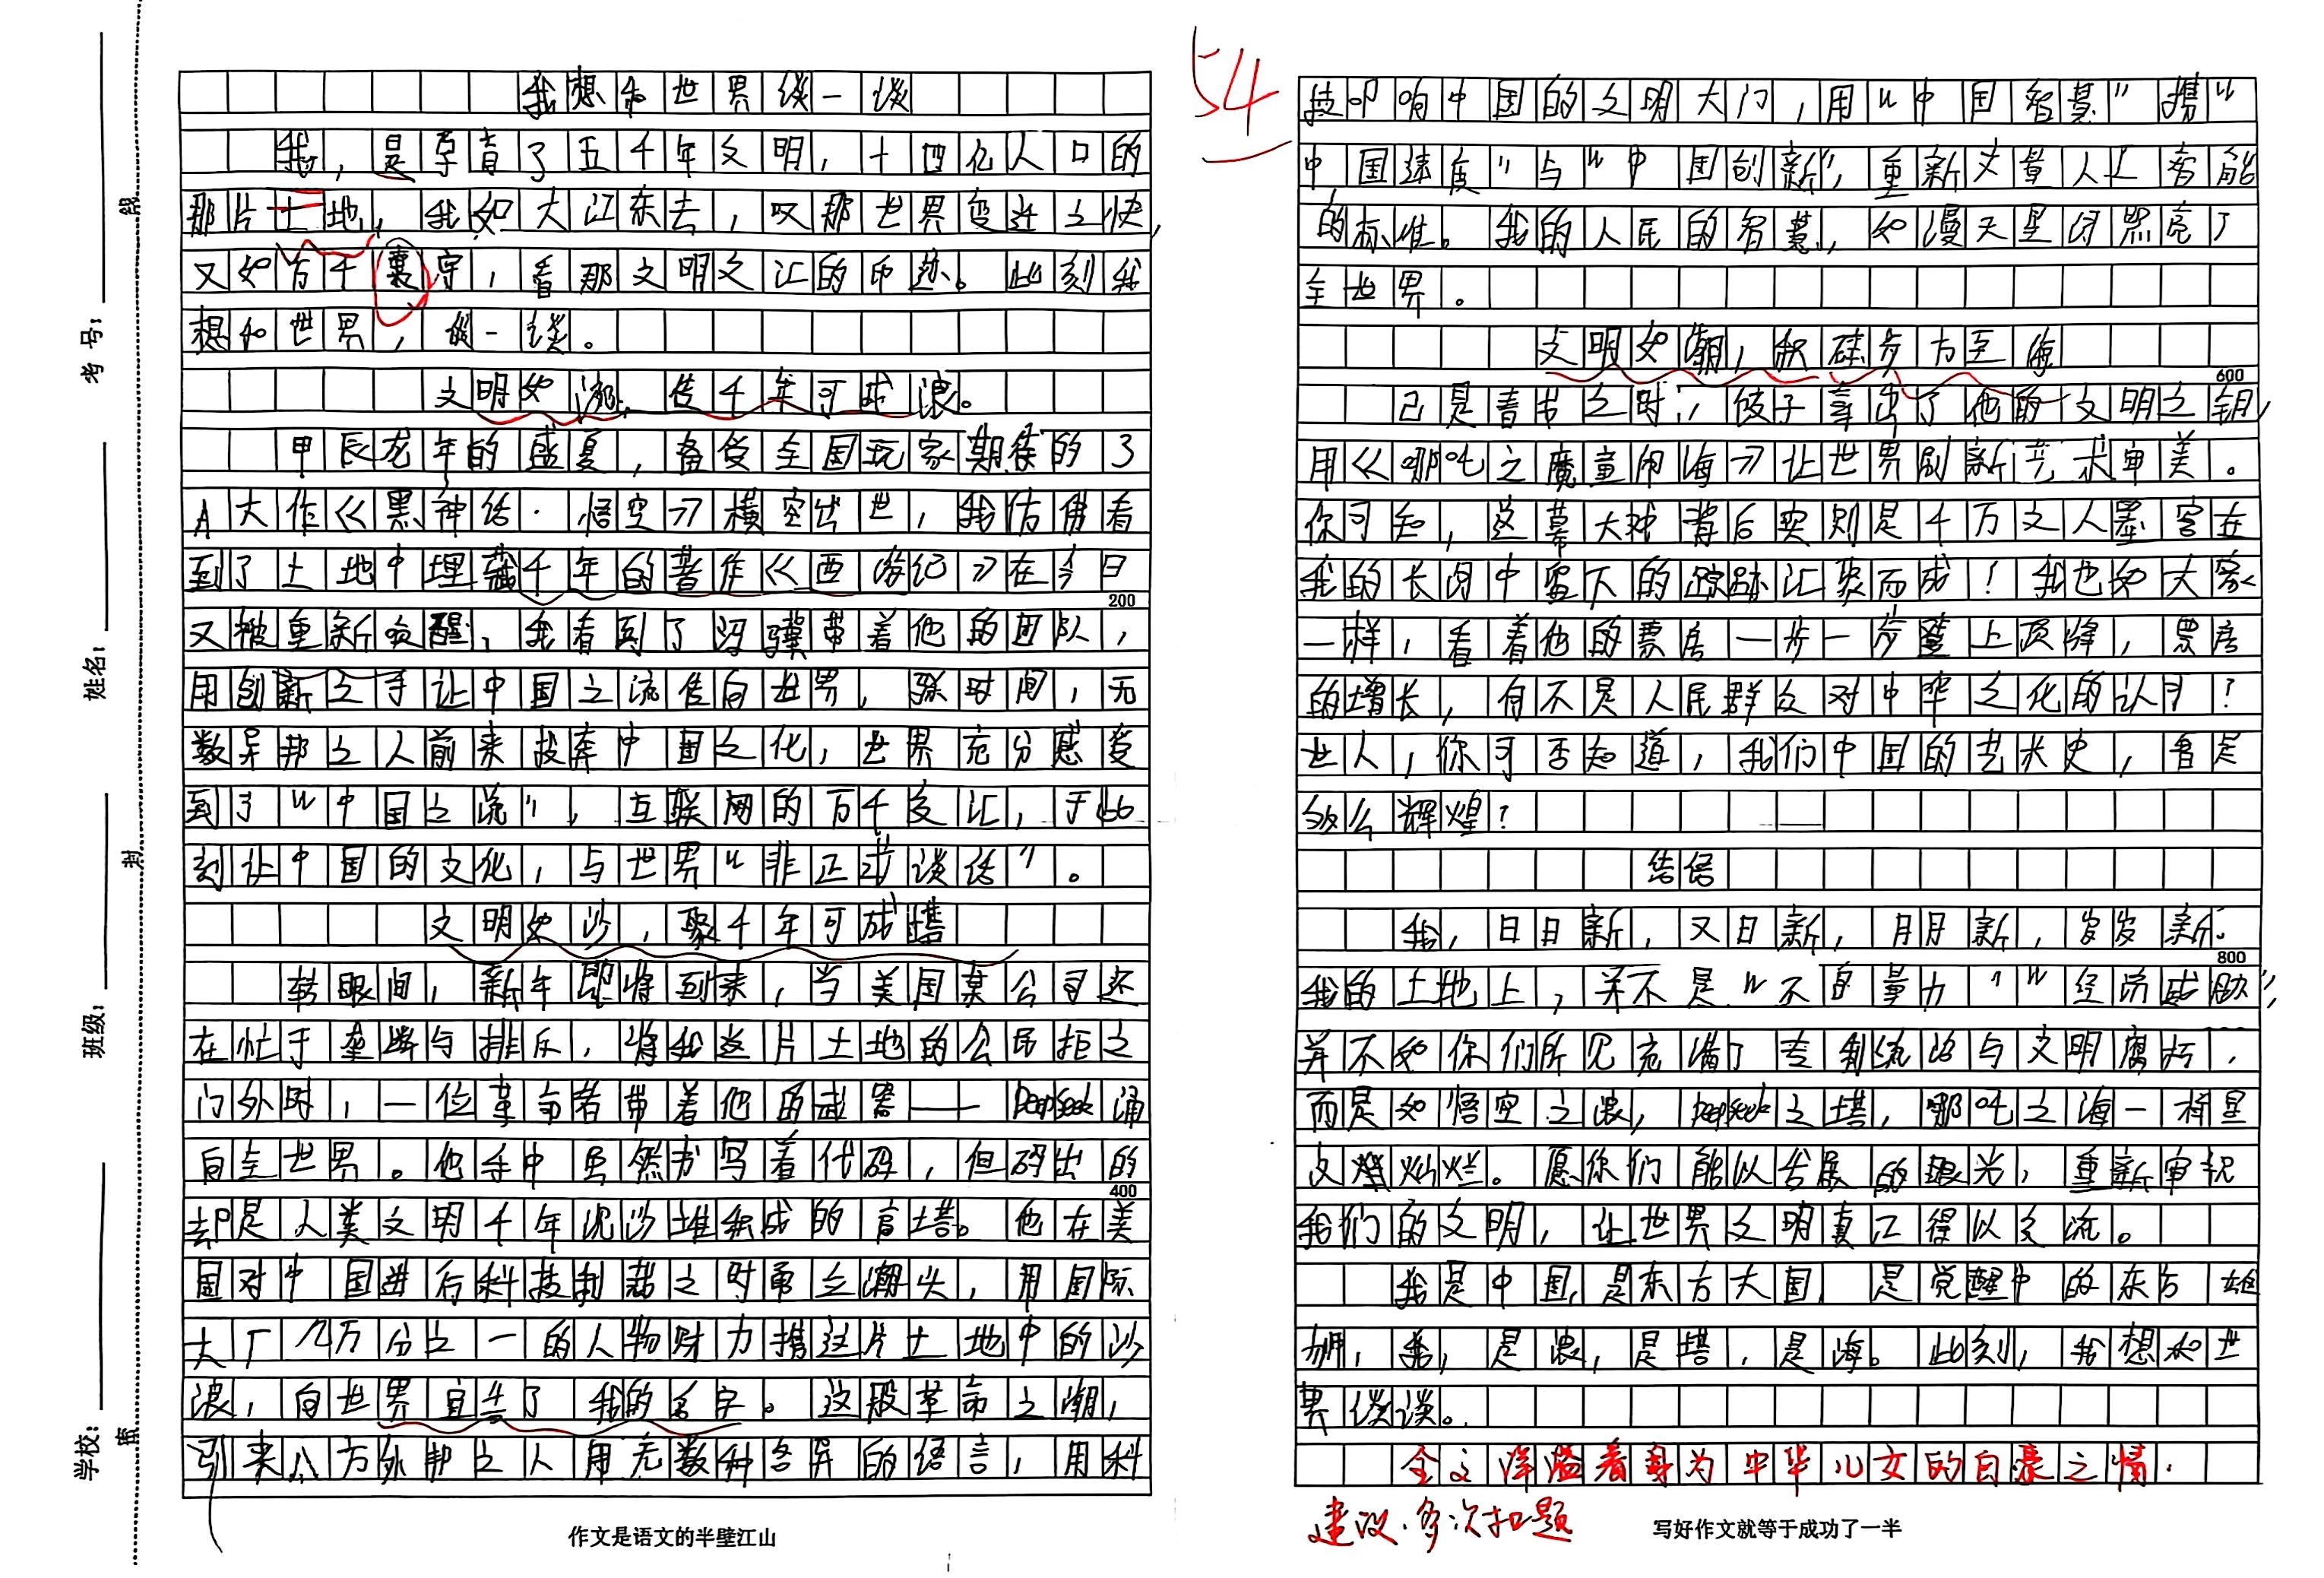 我想和世界谈一谈
我，是孕育了五千年文明，十四亿人口的
那片土地，我如大江东去，叹那世界变迁之快，
又如万千寰宇，看那文明交汇的印迹。此刻我
想和世界，谈一谈。
文明如流，传千年可成浪。
甲辰龙年的盛夏，备受全国玩家期待的3
A大作《黑神话·悟空》横空出世，我仿佛看
到了土地中埋藏千年的著作《西游记》在今日
又被重新唤醒，我看到了冯骥带着他的团队，
用创新之手让中国之流传向世界，霎时间，无
数异邦之人前来投奔中国文化，世界充分感受
到了“中国之流”，互联网的万千交汇，于此
刻让中国的文化，与世界“非正式谈话”。
文明如沙，聚千年可成塔
转眼间，新年即将到来，当美国某公司还
在忙于垄断与排斥，将我这片土地的公民拒之
门外时，一位革命者带着他的武器——DeepSeek涌
向全世界。他手中虽然书写着代码，但码出的
却是人类文明千年沉沙堆积成的高塔。他在美
国对中国进行科技制裁之时勇立潮头，用国际
大厂几万分之一的人物财力携这片土地中的沙
浪，向世界宣告了我的名字。这股革命之潮，
引来八方外邦之人用无数种各异的语言，用科
技叩响中国的文明大门，用“中国智慧”携“
中国速度”与“中国创新”，重新定义人工智能
的标准。我的人民的智慧，如漫天星河照亮了
全世界。
文明如潮，积硅步方至海
已是春节之时，饺子拿出了他的文明之钥，
用《哪吒之魔童闹海》让世界刷新艺术审美。
你可知，这幕大戏背后实则是千万文人墨客在
我的长河中留下的踪迹汇聚而成！我也如大家
一样，看着他的票房一步一步登上顶峰，票房
的增长，何不是人民群众对中华文化的认可？
世人，你可否知道，我们中国的艺术史，曾是
多么辉煌？
结语
我，日日新，又日新，月月新，岁岁新。
我的土地上，并不是“不自量力”“经济威胁”，
并不如你们所见充满了专制统治与文明腐朽，
而是如悟空之浪，DeepSeek之塔，哪吒之海一样星
文璀灿烂。愿你们能以发展的眼光，重新审视
我们的文明，让世界文明真正得以交流。
我是中国，是东方大国，是觉醒中的东方雄
狮，我，是浪，是塔，是海。此刻，我想和世
界谈谈。
54
全文洋溢着身为中华儿女的自豪之情.
建议.多次扣题
学校：
班级：
姓名：
考号：
密
封
线
作文是语文的半壁江山
写好作文就等于成功了一半
200
400
600
800